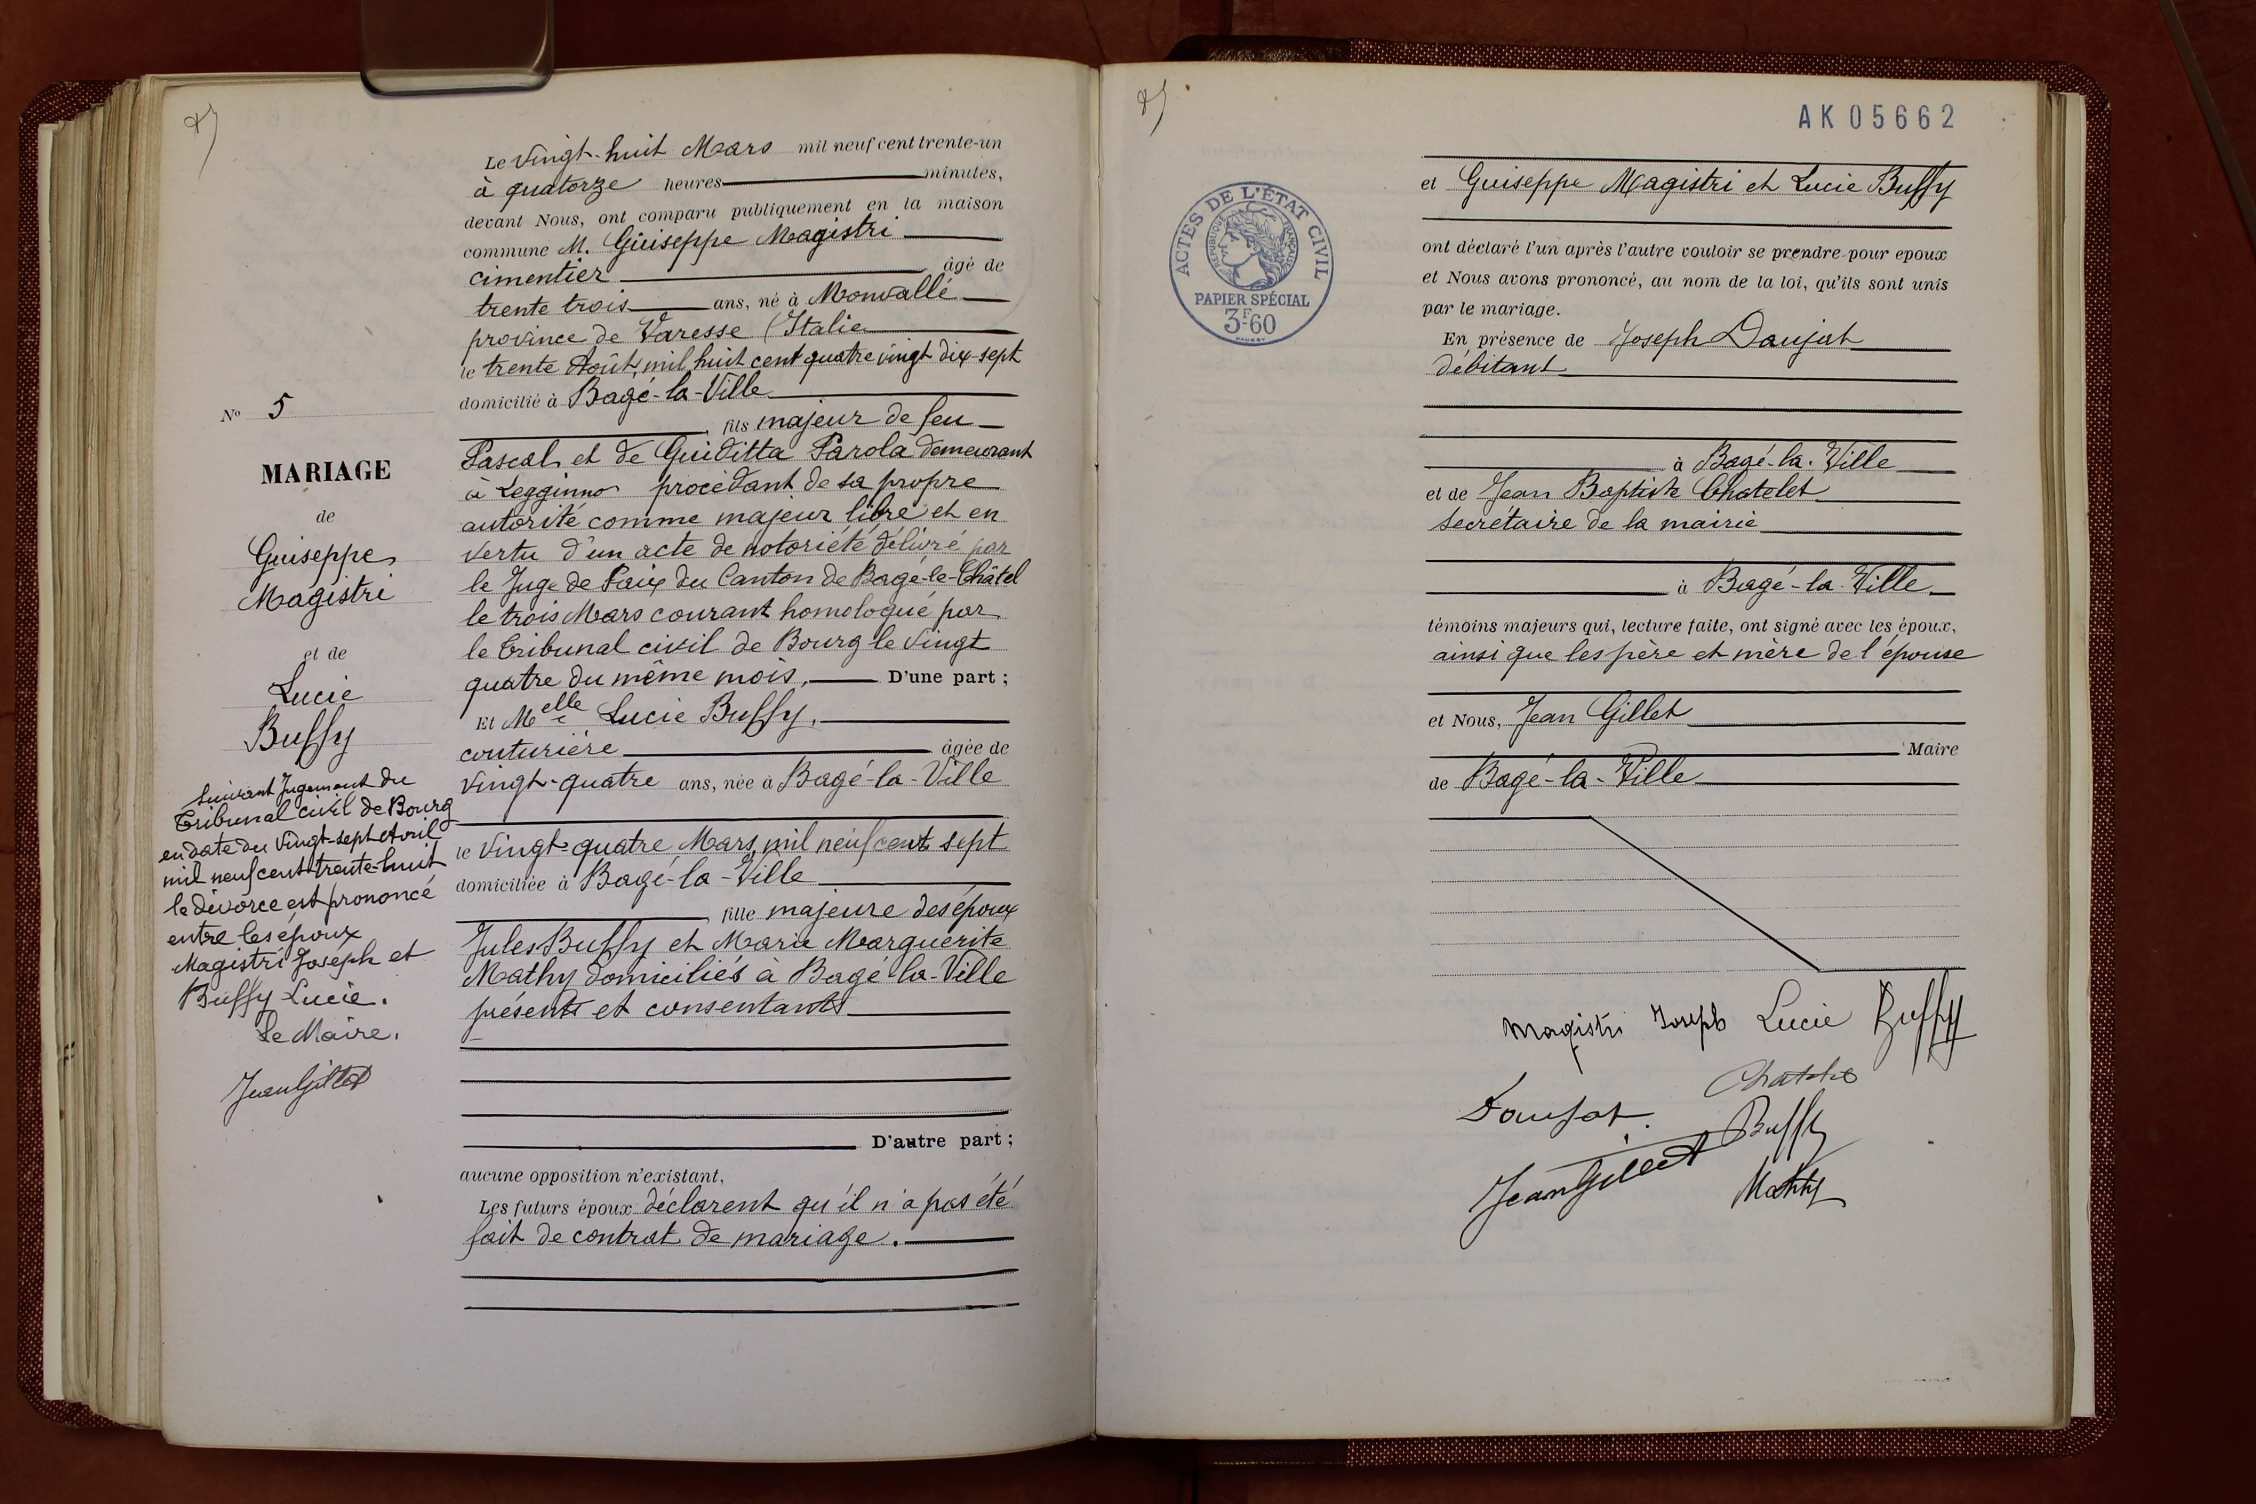 N° 5
MARIAGE
de
Guiseppe
Magistri
et de
Lucie
Buffy
Suivant Jugement du
Tribunal civil de Bourg
en date du Vingt-sept Avril
mil neuf cent trente-huit
le divorce est prononcé
entre les époux
Magistri Joseph et
Buffy Lucie.
Le Maire.
Jean Gillet
Le Vingt-huit Mars mil neuf cent trente-un
à quatorze heures minutes,
devant Nous, ont comparu publiquement en la maison
commune M. Guiseppe Magistri
cimentier âgé de
trente trois ans, né à Monvallé
province de Varesse (Italie
le trente Août, mil huit cent quatre vingt dix-sept
domicilié à Bagé-la-Ville
, fils majeur de feu
Pascal et de Guiditta Parola demeurant
à Legginno procédant de sa propre
autorité comme majeur libre et en
vertu d'un acte de notoriété délivré par
le Juge de Paix du Canton de Bagé-le-Châtel
le trois Mars courant homologué par
le Tribunal civil de Bourg le vingt
quatre du même mois, D'une part ;
Et Melle Lucie Buffy,
couturière âgée de
vingt-quatre ans, née à Bagé-la-Ville
le vingt-quatre Mars, mil neuf cent sept
domiciliée à Bagé-la-Ville
, fille majeure des époux
Jules Buffy et Marie Marguerite
Mathy domiciliés à Bagé-la-Ville
présents et consentants
D'autre part ;
aucune opposition n'existant,
Les futurs époux déclarent qu'il n'a pas été
fait de contrat de mariage.
AK05662
ACTES DE L'ÉTAT CIVIL
RÉPUBLIQUE FRANÇAISE
PAPIER SPÉCIAL
3F60
et Guiseppe Magistri et Lucie Buffy
ont déclaré l'un après l'autre vouloir se prendre pour époux
et Nous avons prononcé, au nom de la loi, qu'ils sont unis
par le mariage.
En présence de Joseph Daujat
débitant
à Bagé-la-Ville
et de Jean Baptiste Chatelet
secrétaire de la mairie
à Bagé-la-Ville
témoins majeurs qui, lecture faite, ont signé avec les époux,
ainsi que les père et mère de l'épouse
et Nous, Jean Gillet
Maire
de Bagé-la-Ville
Magistri Joseph Lucie Buffy
Chatelet
Daujat. Buffy
Jean Gillet Mathy